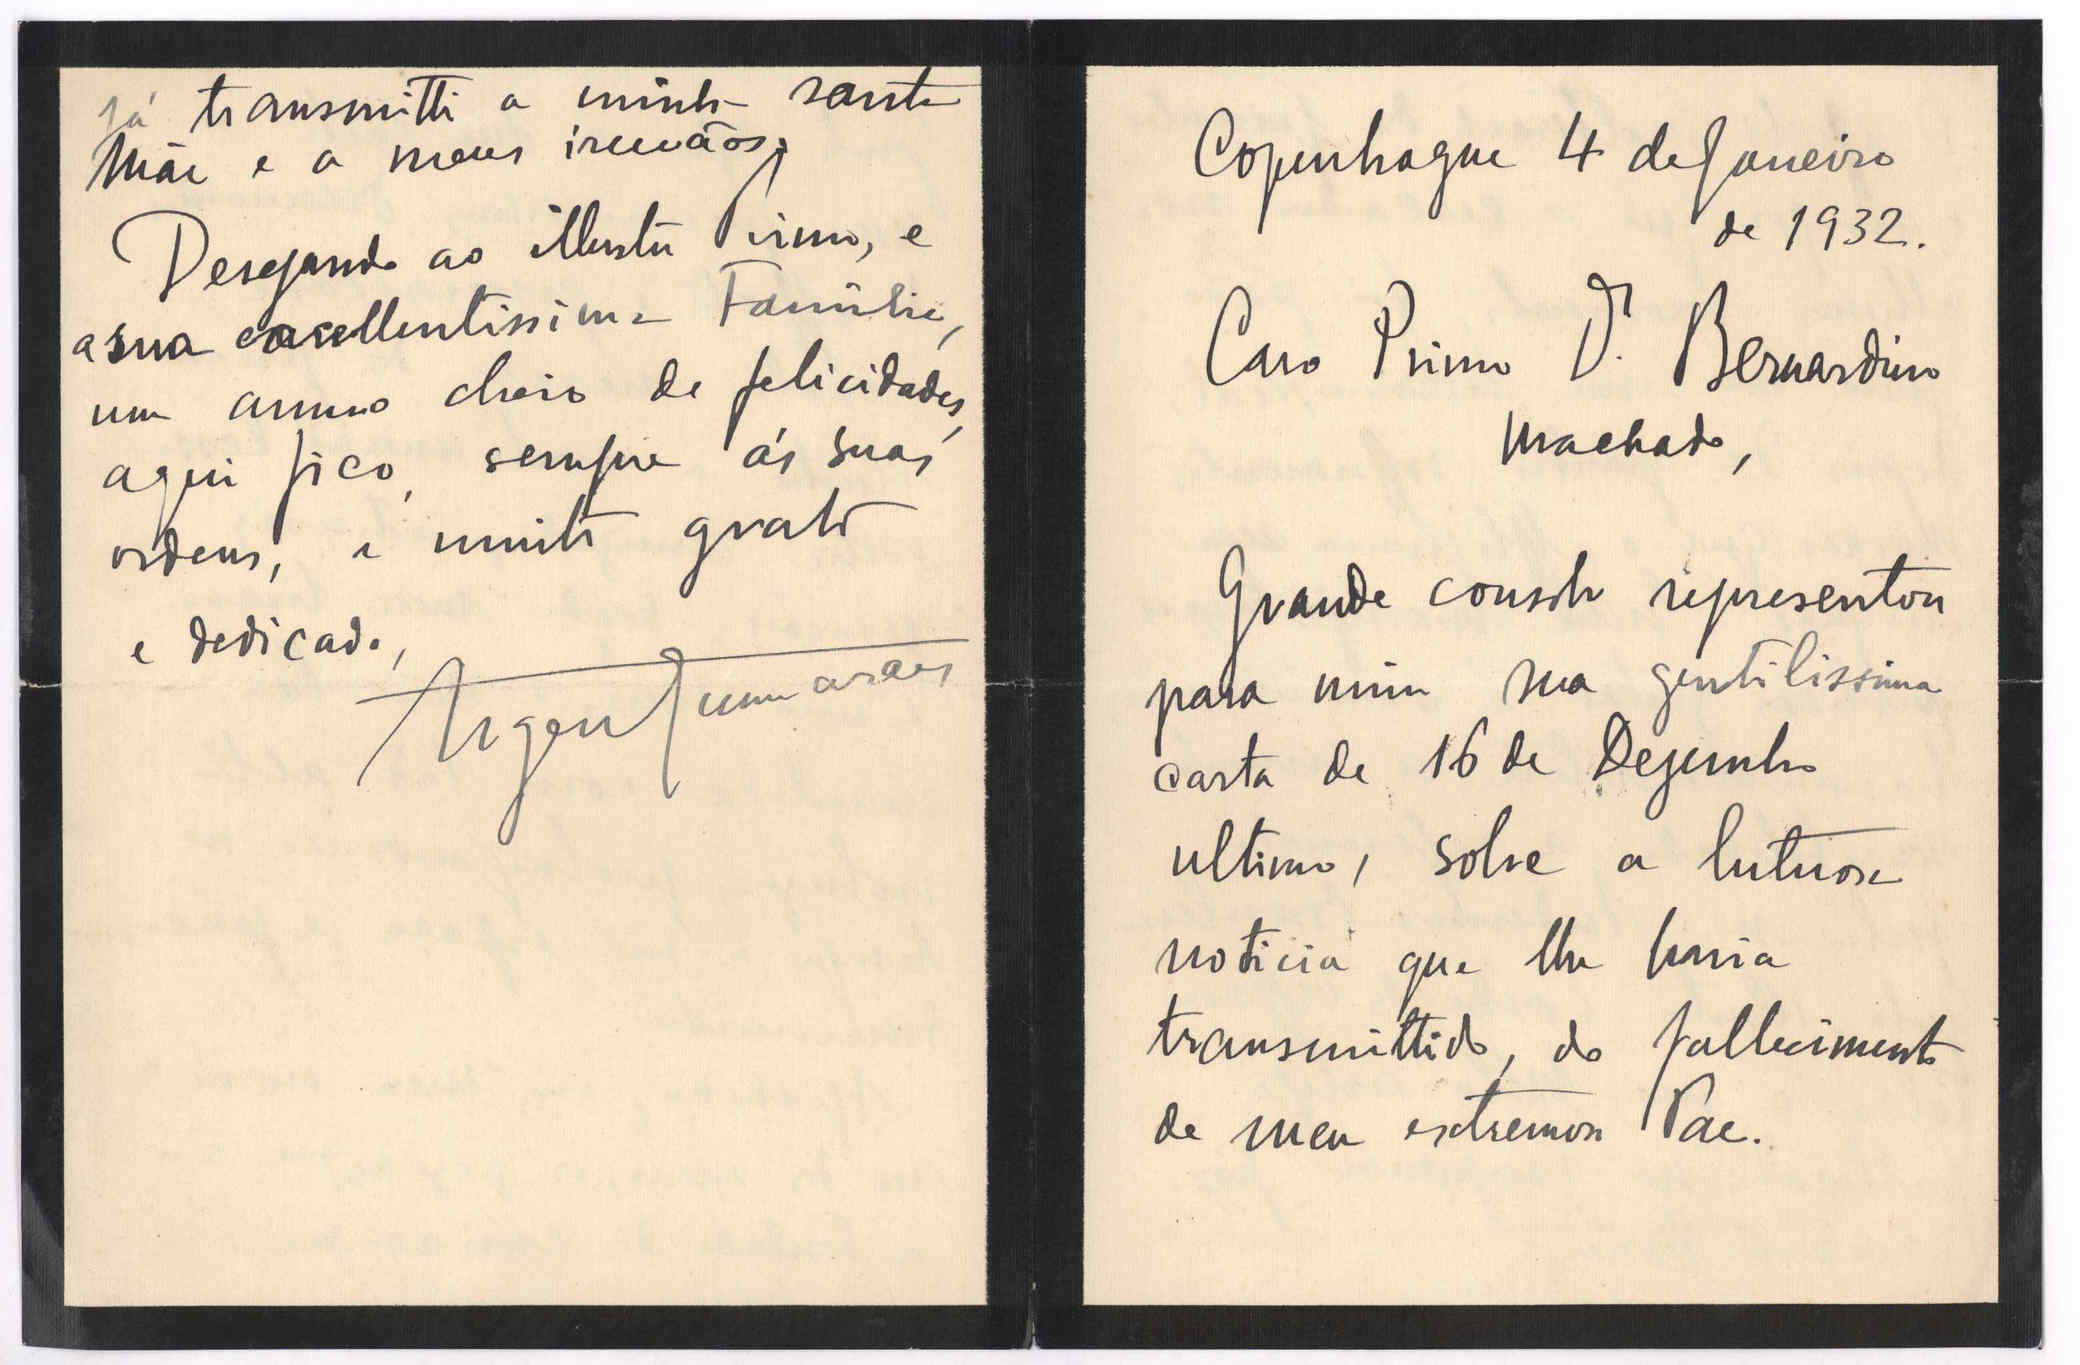 Copenhague 4 de Janeiro
de 1932.
Caro Primo Dr. Bernardino
Machado,
Grande consolo representou
para mim sua gentilissima
carta de 16 de Dezembro
ultimo, sobre a lutuosa
noticia que lhe havia
transmittido, do fallecimento
de meu extremoso Pae.
já transmitti a minha santa
Mãe e a meus irmãos.
Desejando ao illustre Primo, e
a sua excellentissima Familia,
um anno cheio de felicidades,
aqui fico, sempre ás suas
ordens, e muito grato
e dedicado,
Argeu Guimarães